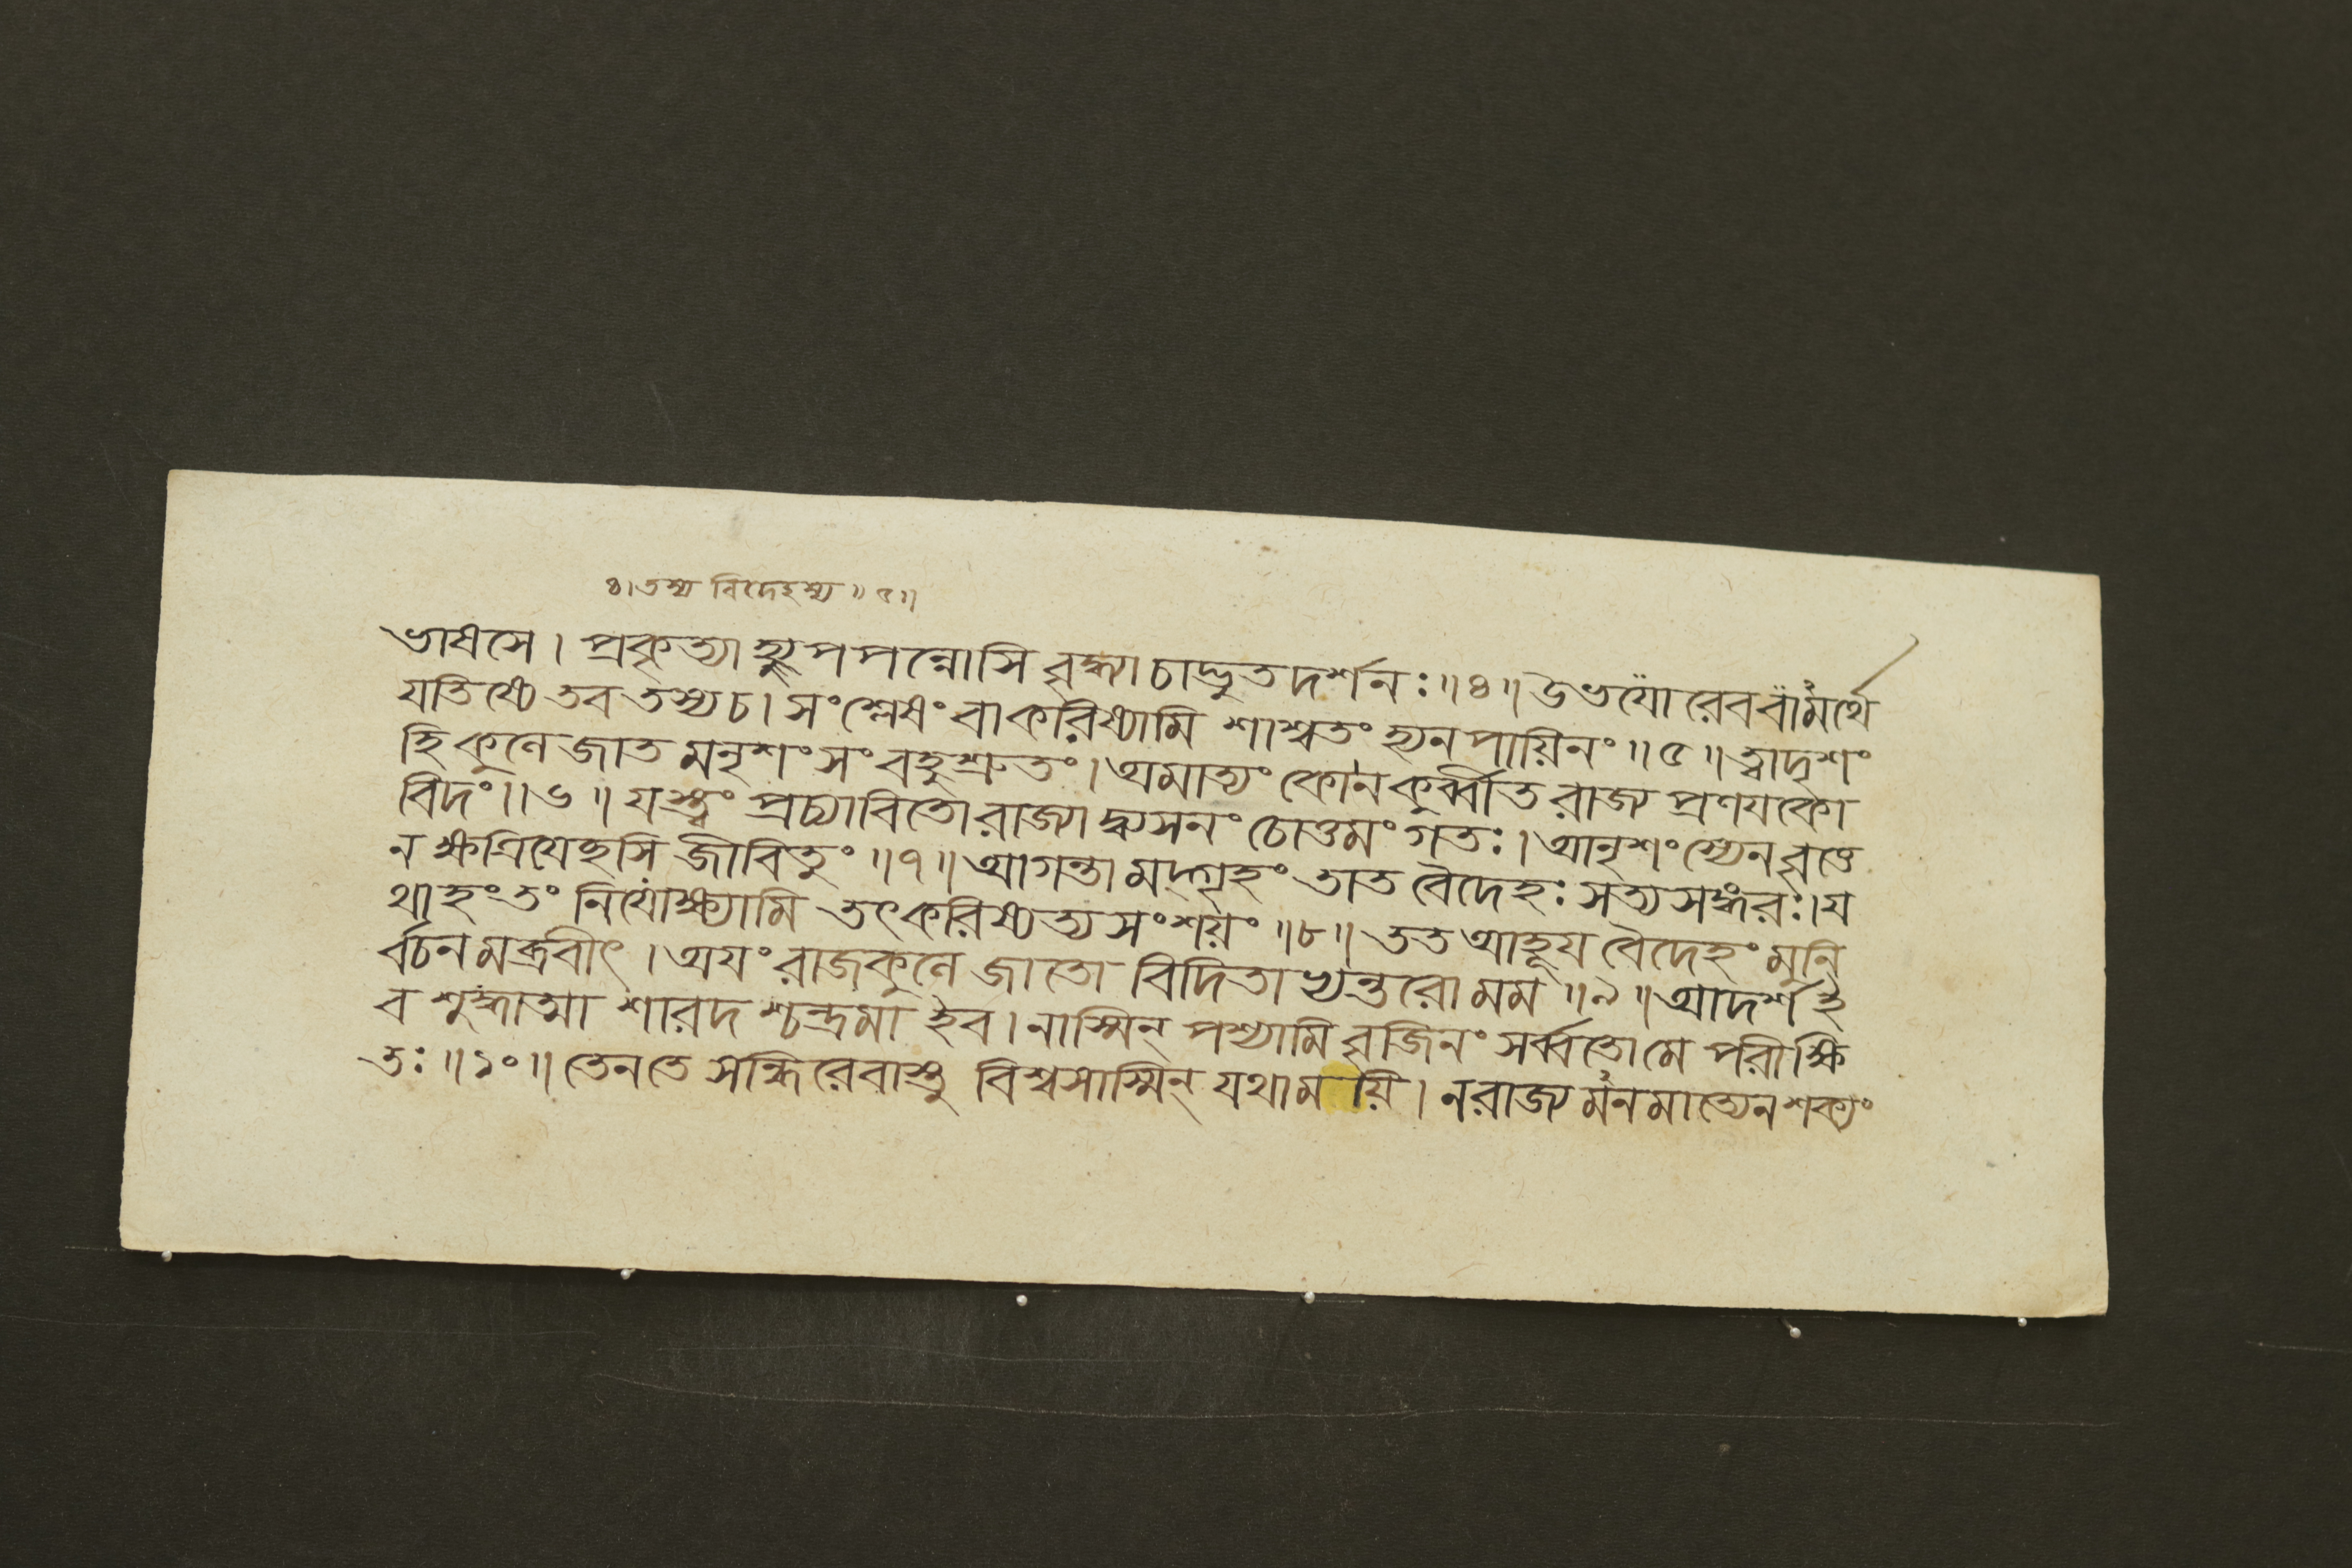 ৪।তস্য বিদেহস্য॥৫॥
ভাষসে। প্রকৃত্যা হ্যুপপন্নোসি বুদ্ধ্যা চাদ্ভুতদর্শনঃ॥৪॥ উভয়োরেববামর্থে
যতিষ্যে তব তস্যচ। সংশ্লেষং বাকরিষ্যামি শাশ্বতং হ্যনপায়িনং॥৫॥ ত্বাদৃশং
হি কুলে জাত মনৃশংসং বহুশ্রুতং। অমাত্যং কোনকুর্ব্বীত রাজ্য প্রণযকো
বিদং॥৬॥ যস্ত্বং প্রচ্যাবিতো রাজ্যাদ্ব্যসনং চোত্তমং গতঃ। আনৃশংস্যেন বৃত্তে
ন ক্ষত্রিযেছসি জীবিতুং॥৭॥ আগন্তা মদ্গৃহং তাত বৈদেহঃ সত্যসঙ্গরঃ। য
থাহং তং নিযোক্ষ্যামি তৎকরিষ্যত্যসংশয়ং॥৮॥ তত আহূয বৈদেহং মুনি
র্বচনমব্রবীৎ। অযং রাজকুলে জাতো বিদিতাভ্যন্তরো মম॥৯॥ আদর্শ ই
ব শুদ্ধাত্মা শারদশ্চন্দ্রমা ইব। নাস্মিন্ পশ্যামি বৃজিনং সর্ব্বতো মে পরীক্ষি
তঃ॥১০॥ তেনতে সন্ধিরেবাস্তু বিশ্বসাস্মিন্ যথাময়ি। নরাজ্যমনমাত্যেন শক্যং